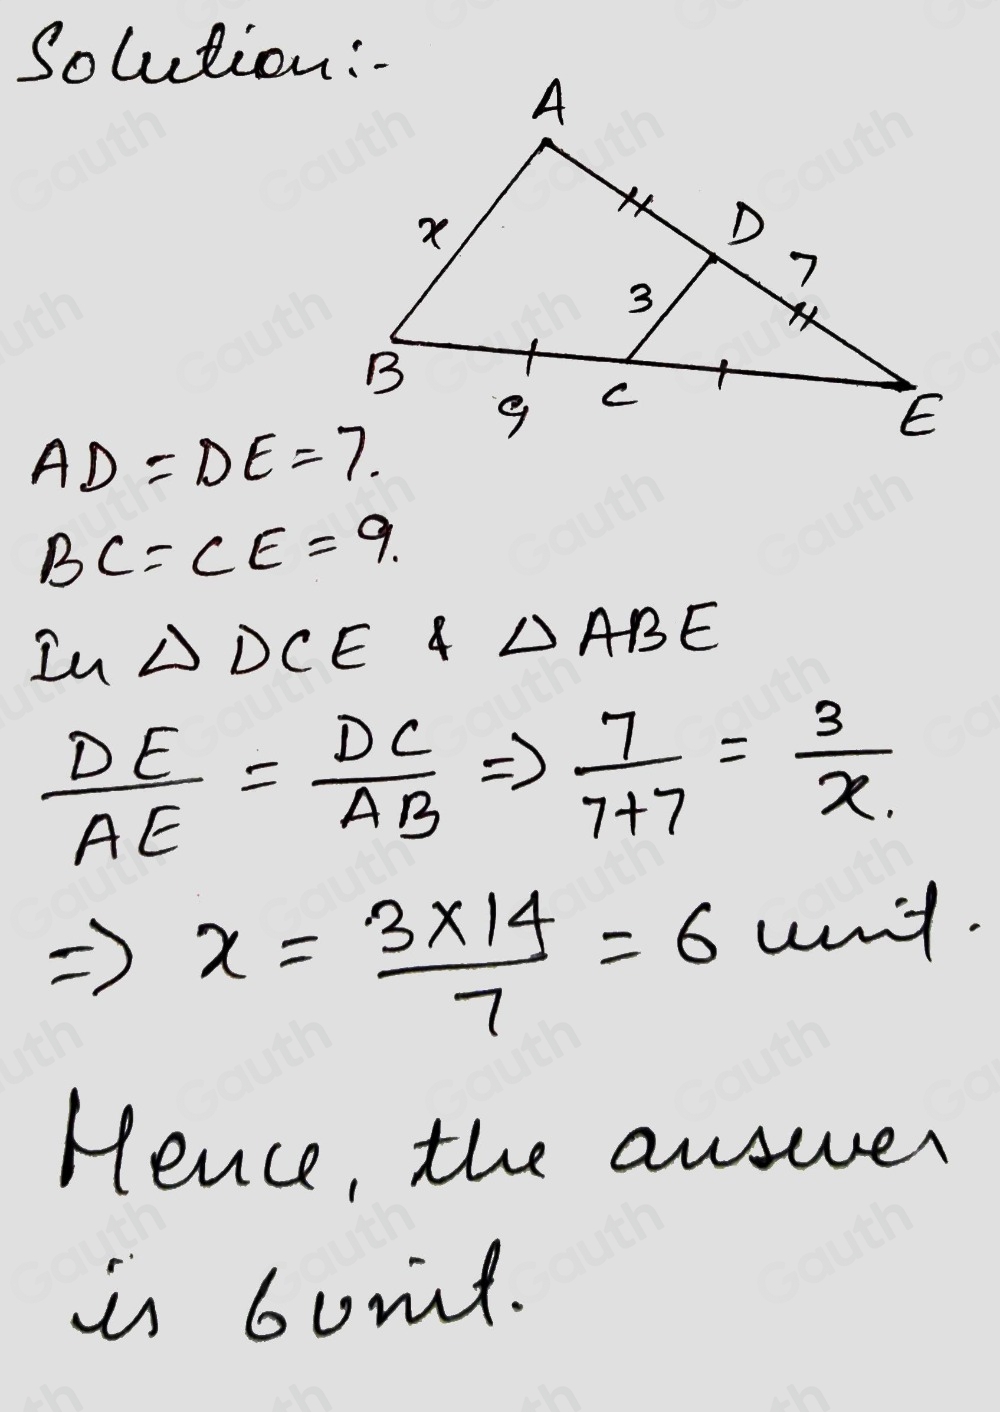 Solution:-
A
x
D
7
3
B
9
C
E
AD = DE = 7.
BC = CE = 9.
In △ DCE & △ ABE
DE/AE = DC/AB => 7/7+7 = 3/x.
=> x = 3×14/7 = 6 unit.
Hence, the answer
is 6 unit.